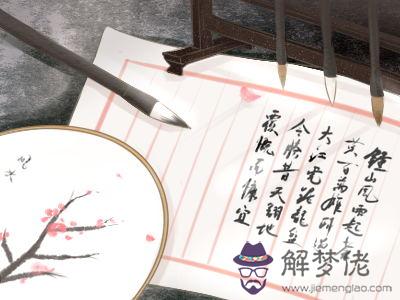 鐘山风雨起蒼
黄百万雄师过
大江虎踞龙盘
今胜昔天翻地
覆慨而慷宜
解梦佬
www.jiemenglao.com